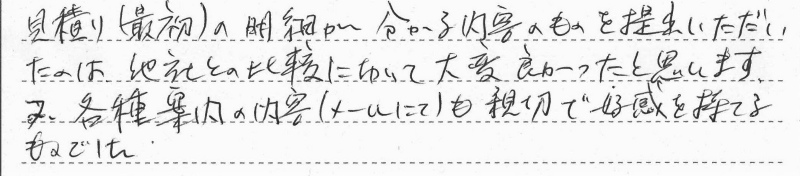 見積り(最初)の明細が分かる内容のものを提出いただい
たのは、他社との比較において大変良かったと思います。
又、各種案内の内容(メールにて)も親切で好感を持てる
ものでした.